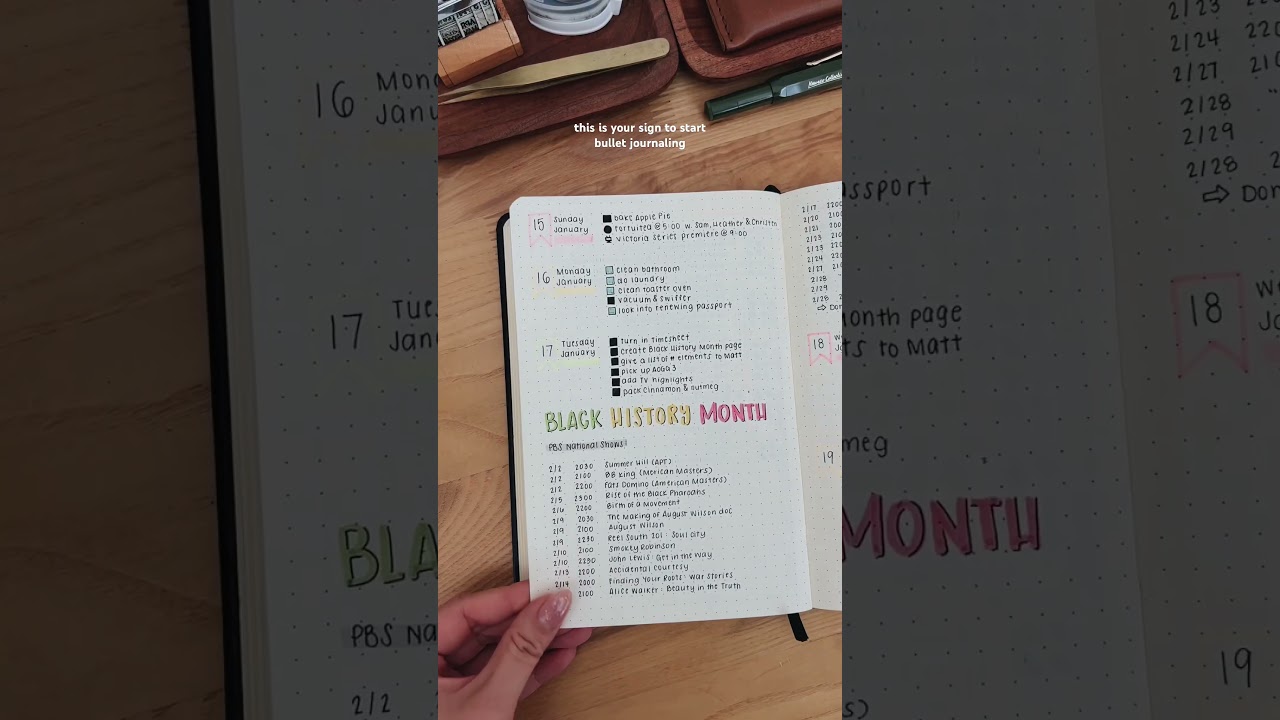 this is your sign to start
bullet journaling
15 Sunday January
bake Apple Pie
Tortuited @ 5:00 w. Sam, Heather & Christen
Victoria series premiere @ 9:00
16 Monday January
clean bathroom
do laundry
clean toaster oven
vacuum & swiffer
look into renewing passport
17 Tuesday January
turn in timesheet
create Black History Month page
give a list of # elements to Matt
pick up AOGG 3
add TV highlights
pack Cinnamon & nutmeg
BLACK HISTORY MONTH
PBS National Shows
2/2 2030 Summer Hill (APT)
2/2 2100 BB King (American Masters)
2/2 2200 Fats Domino (American Masters)
2/5 2300 Rise of the Black Pharoahs
2/6 2200 Birth of a Movement
2/9 2030 The Making of August Wilson doc
2/9 2100 August Wilson
2/9 2230 Reel South 201: Soul City
2/10 2100 Smokey Robinson
2/10 2230 John Lewis: Get in the Way
2/13 2200 Accidental Courtesy
2/14 2000 Finding Your Roots: War Stories
2100 Alice Walker: Beauty in the Truth
2/17 2200
2/20 2100
2/21 200
2/23 210
2/23 220
2/24 220
2/27 210
2/28
2/29
2/28 2
⇨ Don
18
19
16 Mond
Janu
17 Tue
Jan
BLA
PBS Na
2/2
2/23 220
2/24 220
2/27 210
2/28 "
2/29
2/28 2
⇨ Don
assport
onth page
ts to Matt
18 W
Ja
meg
MONTH
19
s)